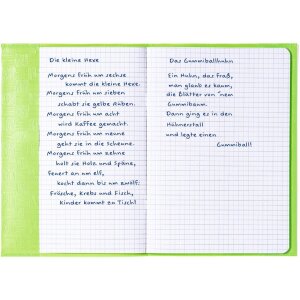 Die kleine Hexe
Morgens früh um sechse
kommt die kleine Hexe.
Morgens früh um sieben
schabt sie gelbe Rüben.
Morgens früh um acht
wird Kaffee gemacht.
Morgens früh um neune
geht sie in die Scheune.
Morgens früh um zehne
holt sie Holz und Späne,
feuert an um elf,
kocht dann bis um zwölf:
Frösche, Krebs und Fisch,
Kinder kommt zu Tisch!
Das Gummiballhuhn
Ein Huhn, das fraß,
man glaub es kaum,
die Blätter von 'nem
Gummibaum.
Dann ging es in den
Hühnerstall
und legte einen
Gummiball!